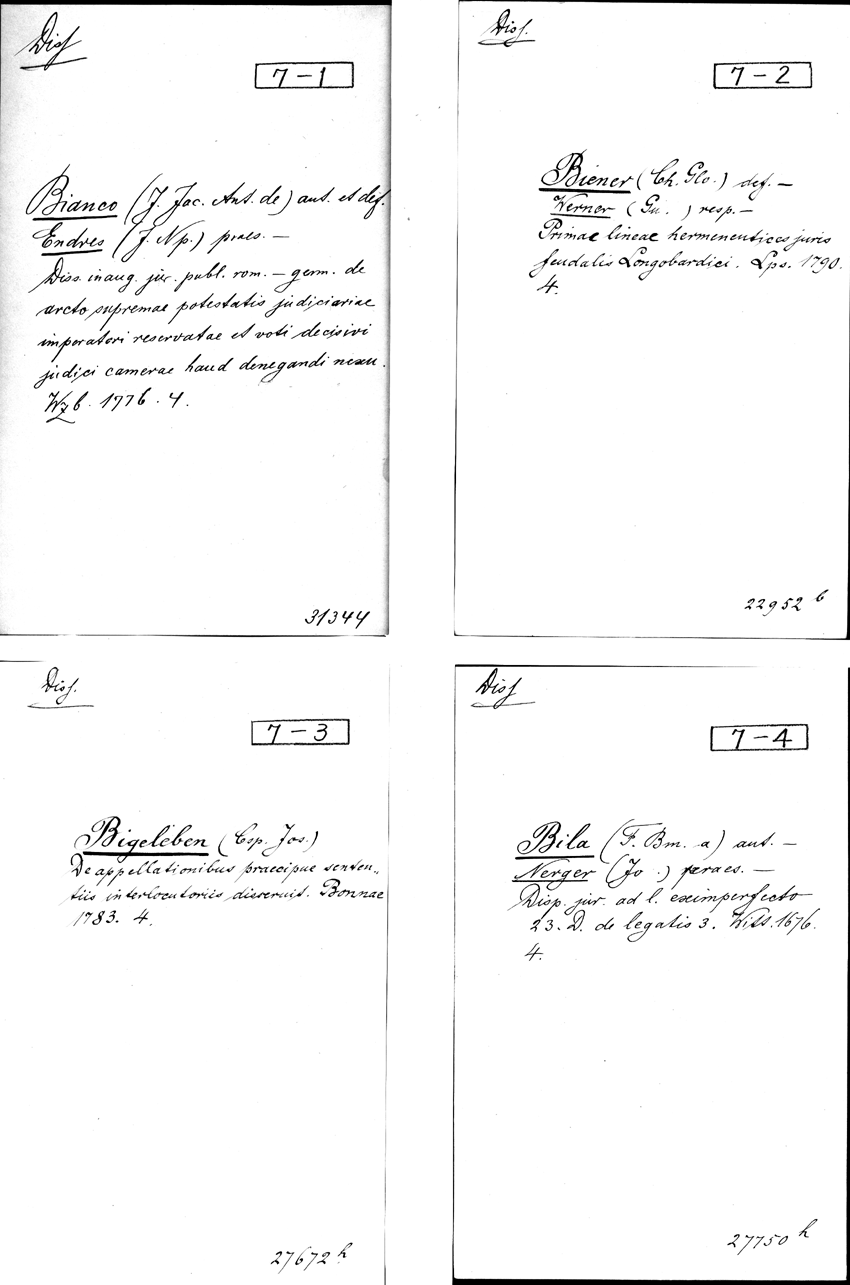 Diss
7-1
Bianco (J. Jac. Ant. de) aut. et def.
Endres (J. Np.) praes. —
Diss. inaug. jur. publ. rom. — germ. de
arcto supremae potestatis judiciariae
imperatori reservatae et voti decisivi
judici camerae haud denegandi nexu.
Wzb. 1776. 4.
31344
Diss.
7-2
Biener (Ch. Glo.) def. —
Werner (Gu. ) resp. —
Primae lineae hermeneutices juris
feudalis Longobardici. Lps. 1790.
4.
22952 b
Diss.
7-3
Bigeleben (Csp. Jos.)
De appellationibus praecipue senten„
tiis interlocutoriis disseruit. Bonnae
1783. 4.
27672 h
Diss
7-4
Bila (F. Bm. a) aut. —
Nerger (Jo .) praes. —
Disp. jur. ad l. eximperfecto
23. D. de legatis 3. Witt. 1676.
4.
27750 h